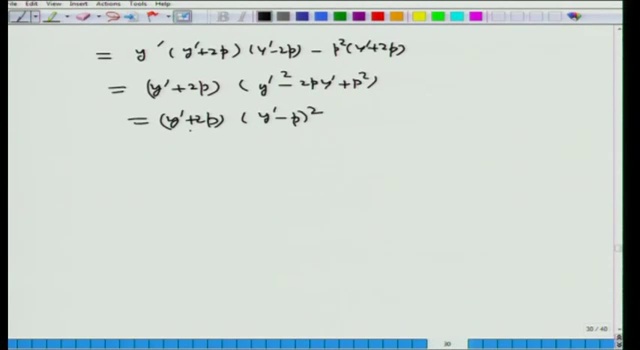 View Insert Actions Tools Help
= y'(y'+2p)(y'-2p) - p²(y'+2p)
= (y'+2p) (y'² - 2py' + p²)
= (y'+2p) (y'-p)²
30 / 40
30